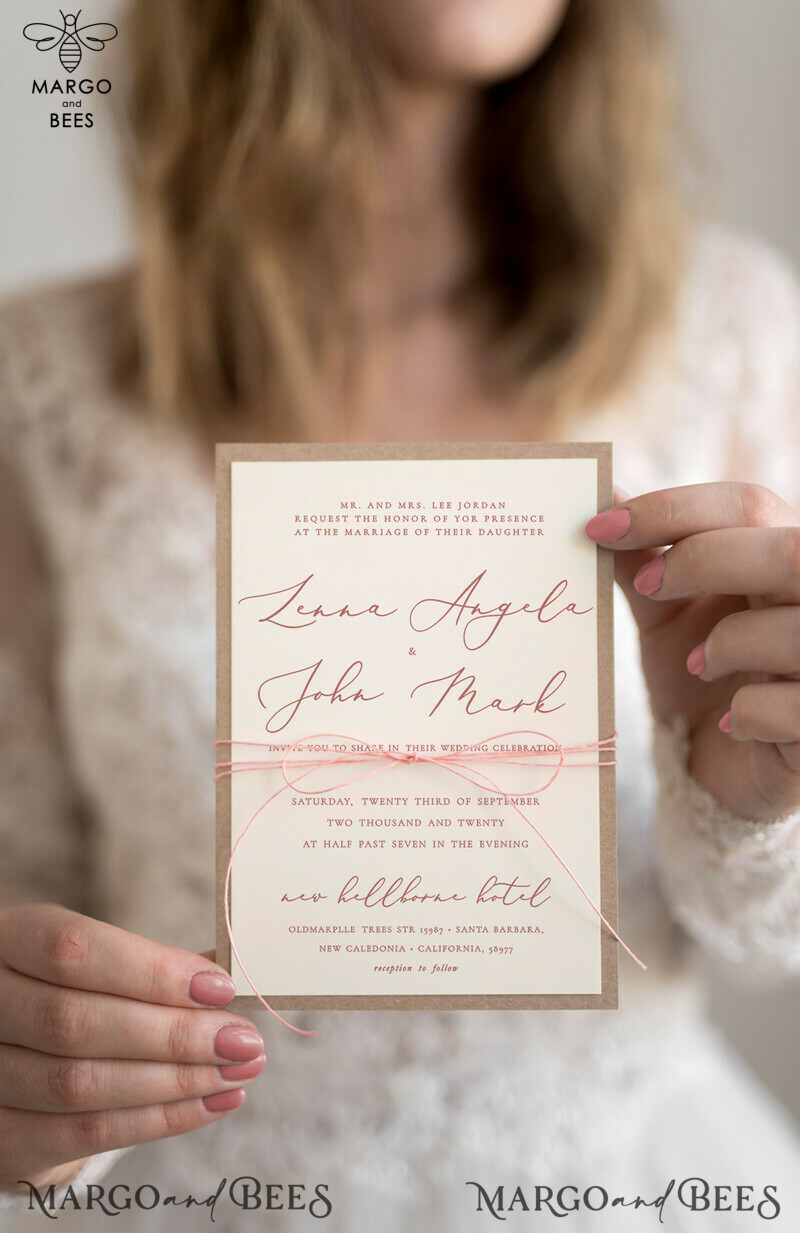 MARGO
and
BEES
MR. AND MRS. LEE JORDAN
REQUEST THE HONOR OF YOR PRESENCE
AT THE MARRIAGE OF THEIR DAUGHTER
Lenna Angela
&
John Mark
INVITE YOU TO SHARE IN THEIR WEDDING CELEBRATION
SATURDAY, TWENTY THIRD OF SEPTEMBER
TWO THOUSAND AND TWENTY
AT HALF PAST SEVEN IN THE EVENING
new hellborne hotel
OLDMARPLLE TREES STR 15987 • SANTA BARBARA,
NEW CALEDONIA • CALIFORNIA, 58977
reception to follow
MARGO and BEES
MARGO and BEES